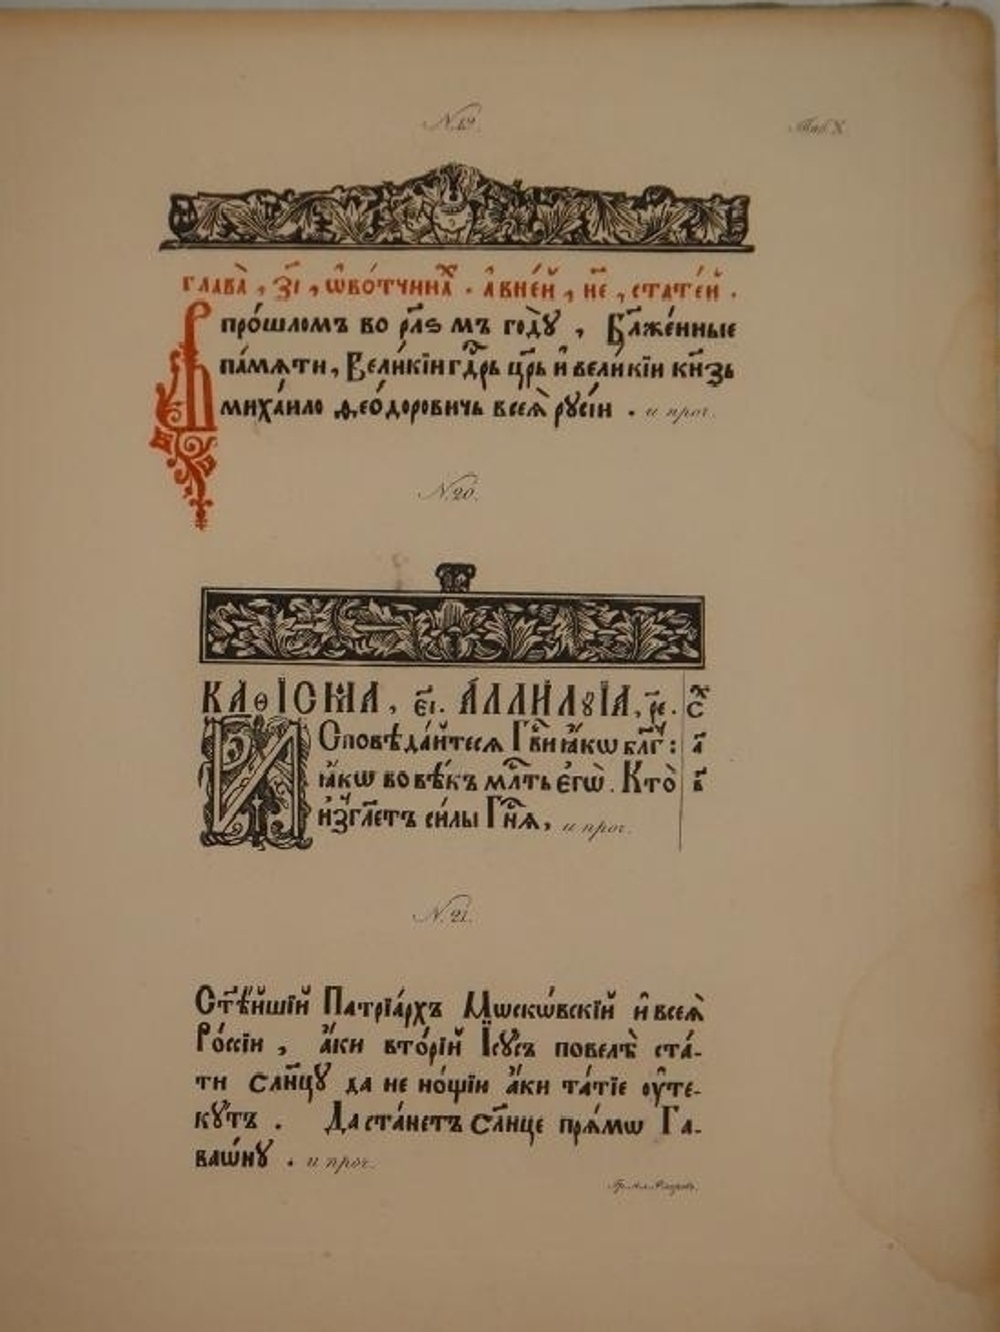 N. 19.
Таб. X.
глава̀ , з҃і , ѡ҆во́тчинах . а҆вне́й , н҃е , стате́й .
В про́шломъ во рл҃ѕ мъ годꙋ̀ , Бл҃же́нные
па́мѧти , Вели́кїи гдⷭ҇рь цр҃ь и҆ вели́кїи кн҃зь
миха́ило ѳео́доровичь всеѧ̀ рꙋсі́и . и проч.
N. 20.
КАѲІСМА , е҃і . АЛЛИЛꙋІА , р҃е . с
Исповѣда́йтесѧ Гⷭ҇ви ꙗ҆́кѡ бл҃гъ : а҃
ꙗ҆́кѡ во вѣ́къ млⷭ҇ть є҆гѡ̀ . Кто̀ в҃
и҆зг҃летъ си́лы Гⷭ҇нѧ , и проч.
N. 21.
Ст҃ѣ́йшїй Патрїа́рхъ Мѡско́вскїй и҆ всеѧ̀
Рѡ́ссїи , а҆́ки вто́рїй Ісꙋ́съ повелѣ̀ ста́-
ти сл҃нцꙋ да не но́щїи а҆́ки та́тїе ᲂу҆те-
кꙋ́тъ . Да ста́нетъ сл҃нце прѧ́мѡ Га-
ваѡ́нꙋ . и проч.
Гр. Ал. Флоровъ.